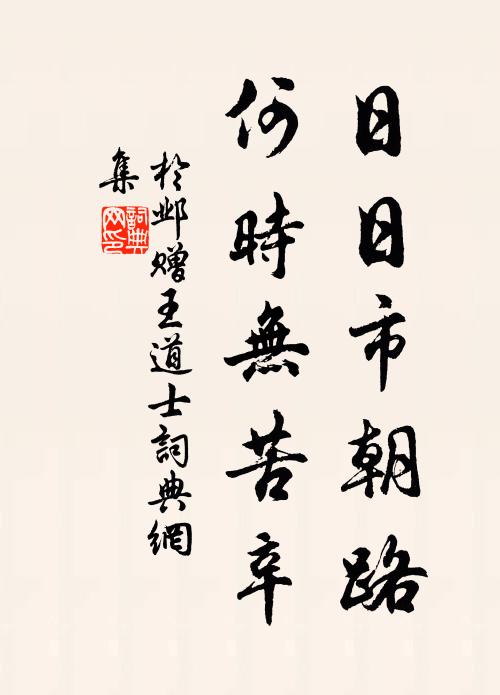 日日市朝路
何時無苦辛
於邺贈王道士詞典網
集
詞典
网印